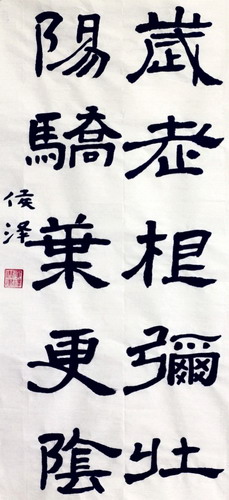 歲老根彌壯
陽驕葉更陰
侯泽